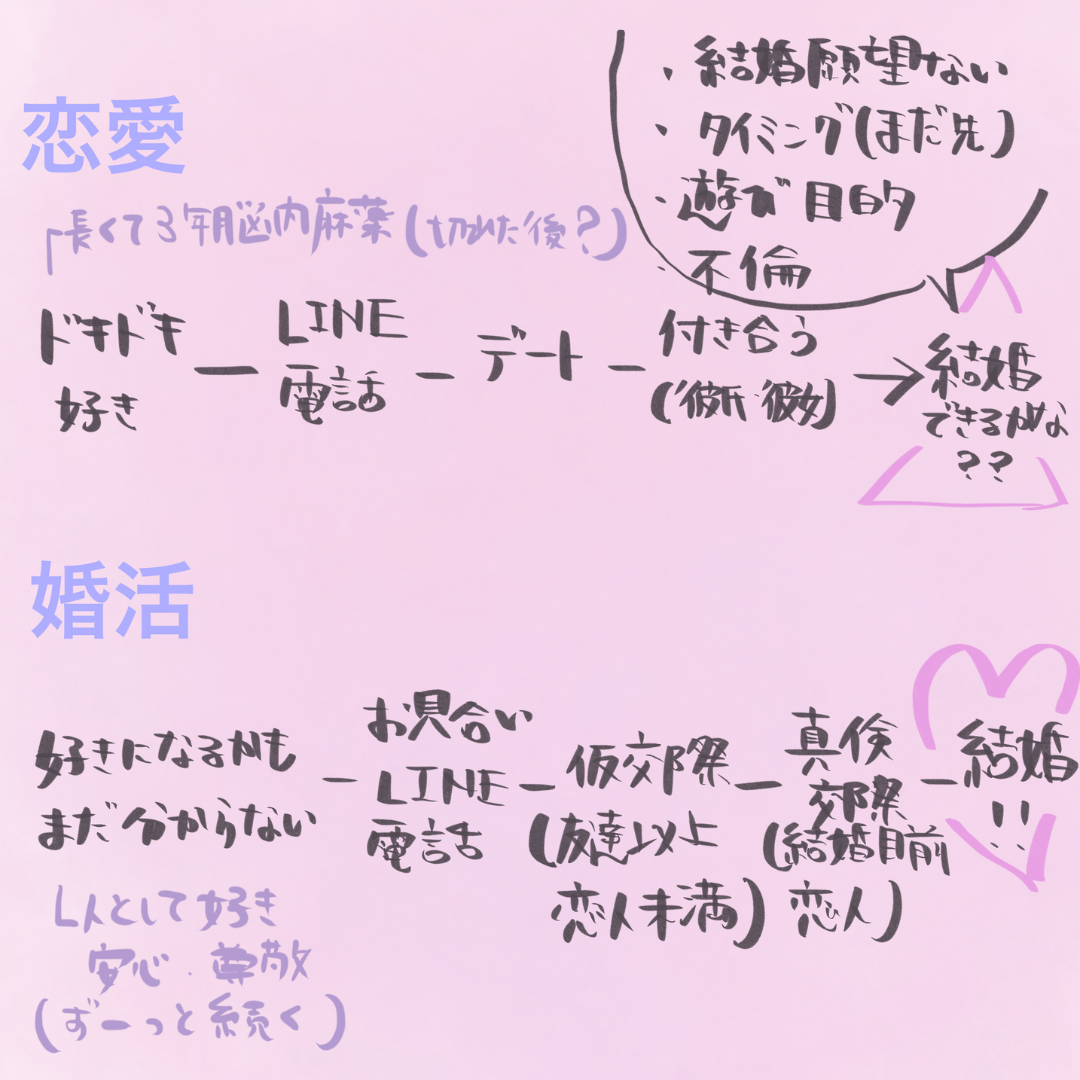 恋愛
・結婚願望ない
・タイミング(まだ先)
・遊び目的
・不倫
長くて3年脳内麻薬(切れた後?)
ドキドキ
好き
LINE
電話
デート
付き合う
(彼氏・彼女)
→結婚
できるかな
??
婚活
好きになるかも
まだ分からない
お見合い
LINE
電話
仮交際
(友達以上
恋人未満)
真剣
交際
(結婚目前
恋人)
結婚
!!
人として好き
安心・尊敬
(ずーっと続く)